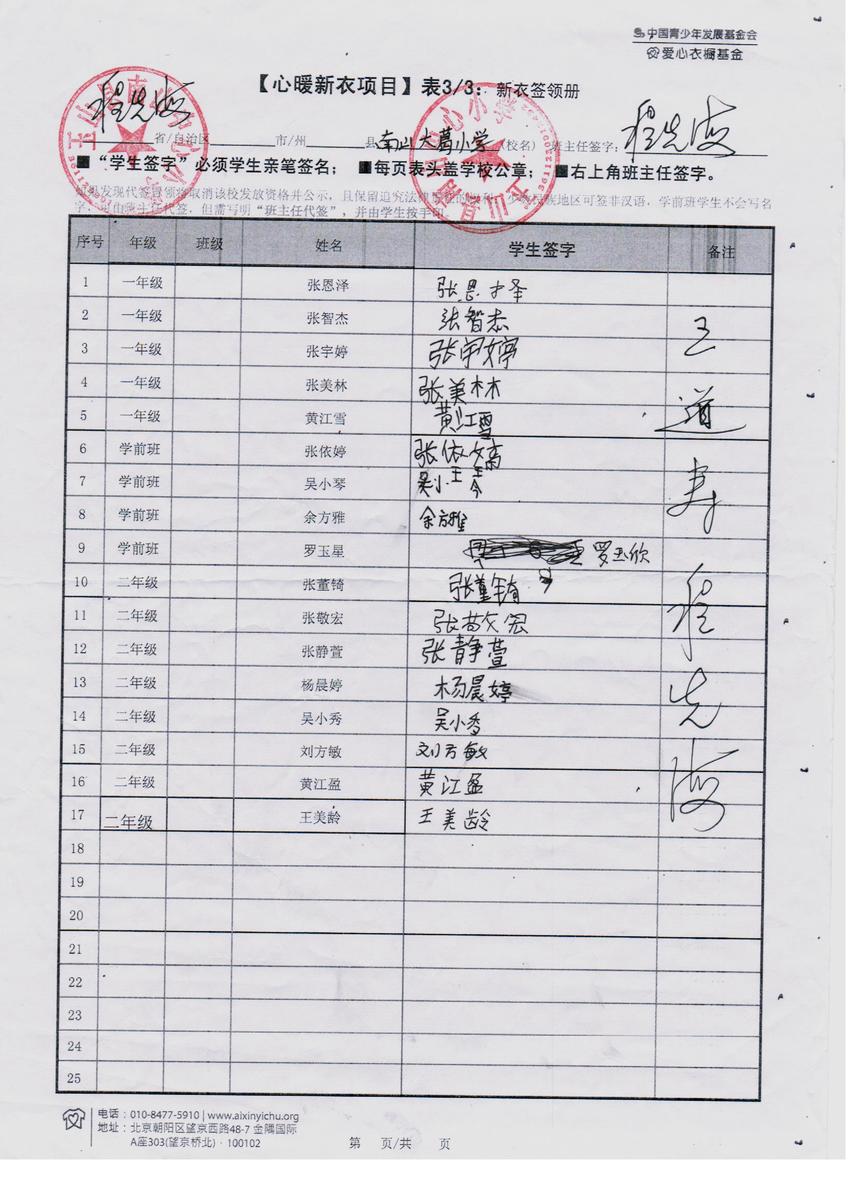 中国青少年发展基金会
爱心衣橱基金
【心暖新衣项目】表3/3：新衣签领册
程先海
省/自治区 市/州 县 南山大葛小学 (校名) 班主任签字： 程先海
■“学生签字”必须学生亲笔签名； ■每页表头盖学校公章； ■右上角班主任签字。
如果发现代签冒领将取消该校发放资格并公示，且保留追究法律责任的权利。少数民族地区可签非汉语，学前班学生不会写名
字，可由班主任代签，但需写明“班主任代签”，并由学生按手印。
序号 年级 班级 姓名 学生签字 备注
1 一年级 张恩泽 张恩泽
2 一年级 张智杰 张智杰 王
3 一年级 张宇婷 张宇婷
4 一年级 张美林 张美林
5 一年级 黄江雪 黄江雪 道
6 学前班 张依婷 张依婷
7 学前班 吴小琴 吴小琴 寿
8 学前班 余方雅 余方雅
9 学前班 罗玉星 罗玉欣
10 二年级 张董锜 张董锜 程
11 二年级 张敬宏 张敬宏
12 二年级 张静萱 张静萱
13 二年级 杨晨婷 杨晨婷 先
14 二年级 吴小秀 吴小秀
15 二年级 刘方敏 刘方敏 海
16 二年级 黄江盈 黄江盈
17 二年级 王美龄 王美龄
18
19
20
21
22
23
24
25
电话：010-8477-5910 | www.aixinyichu.org
地址：北京朝阳区望京西路48-7 金隅国际
A座303(望京桥北)·100102
第 页/共 页